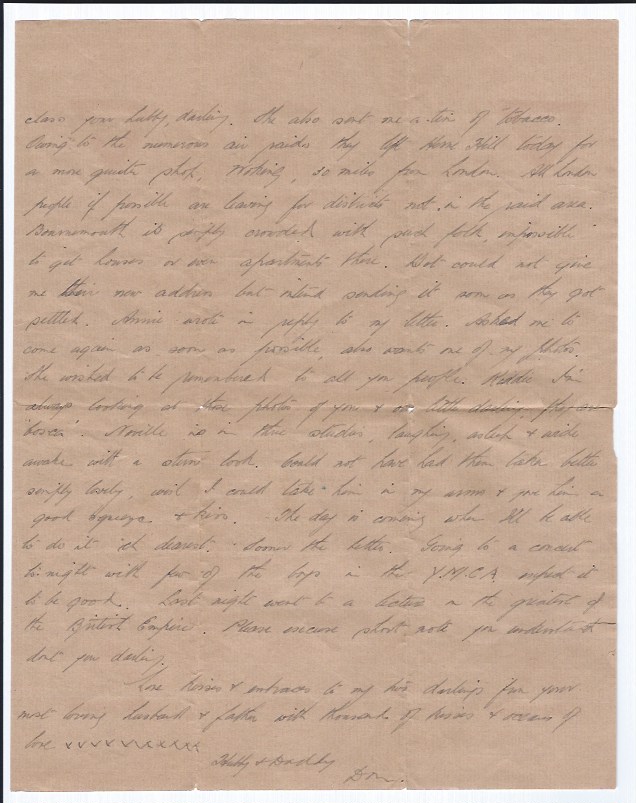 class your hubby, darling. She also sent me a tin of tobacco.
Owing to the numerous air raids they left Herne Hill today for
a more quieter shop, Woking, 30 miles from London. All London
people if possible are leaving for districts not in the raid area.
Bournemouth is simply crowded with such folk, impossible
to get houses or even apartments there. Dot could not give
me their new address but intend sending it soon as they got
settled. Annie wrote in reply to my letter. Asked me to
come again as soon as possible, also wants one of my photos.
She wished to be remembered to all you people. I'm
always looking at those photos of yours & our little darling. They are
. Neville is in three studies, laughing, asleep & wide
awake with a stern look. Could not have had them taken better
simply lovely, wish I could take him in my arms & give him a
good squeeze & kiss. The day is coming when I'll be able
to do it dearest. Sooner the better. Going to a concert
to-night with few of the boys in the Y.M.C.A. expect it
to be good. Last night went to a lecture on the greatest of
the British Empire. Please excuse short note you understand
dont you darling.
Love kisses & embraces to my two darlings from your
most loving husband & father with thousands of kisses & oceans of
love xxxxxxxxxxx
Hubby & Daddy
Don.